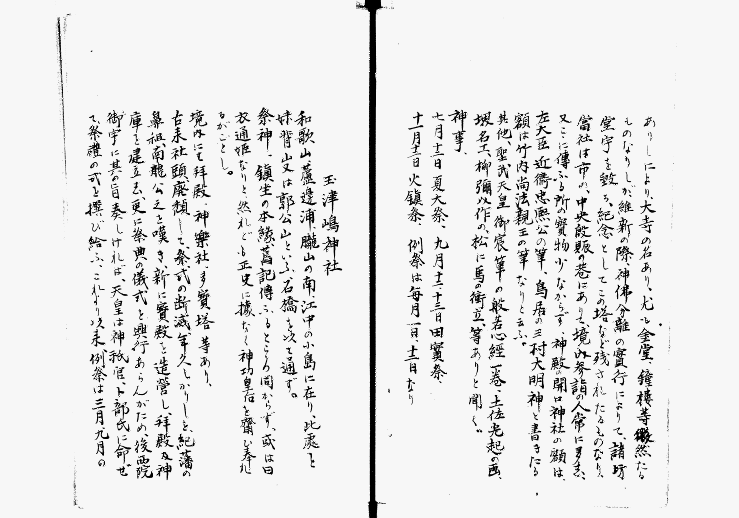 ありしにより大寺の名あり、尤も金堂、鐘樓等巍然たる
ものなりしが維新の際、神佛分離の實行によりて、諸坊
堂宇を毀ち、紀念としてこの塔など残されたるものなり。
當社は市の中央殷賑の巷にありて境内参詣の人常に多し、
又ここに傳ふる所の寶物少なからず、神殿の開口神社の額は、
左大臣近衞忠熙公の筆、鳥居の三村大明神と書きたる
額は竹内尚法親王の筆なりと云ふ、
其他聖武天皇御宸筆の般若心經一巻、土佐光起の画、
堺名工、柳彌以作の、松に馬の衝立、等ありと聞く。
神事、
七月十二日夏大祭、九月十二、十三日田實祭、
十一月十二日火鎮祭、例祭は毎月一日、十二日なり
玉津嶋神社
和歌山、蘆邊浦、朧山の南、江中の小島に在り、此處を
妹背山又は郭公山といふ、石橋を以て通ず。
祭神、鎮坐の本縁、舊記傳ふるところ同からず、或は曰
衣通姫なりと然れども正史に據なく神功皇后を齋ひ奉れ
るがごとし。
境内にも拝殿、神樂社、多寶塔等あり、
古来社頭廢頽して、祭式の断滅年久しかりしを、紀藩の
鼻祖、南龍公之を嘆き、新に寶殿を造營し、拝殿及神
庫を建立し、更に祭典の儀式を興行あらんがため後西院
御宇に其の旨奏しければ、天皇は神祇官、卜部氏に命ぜ
て、祭禮の式を撰び給ふ、これより以来例祭は三月九月の